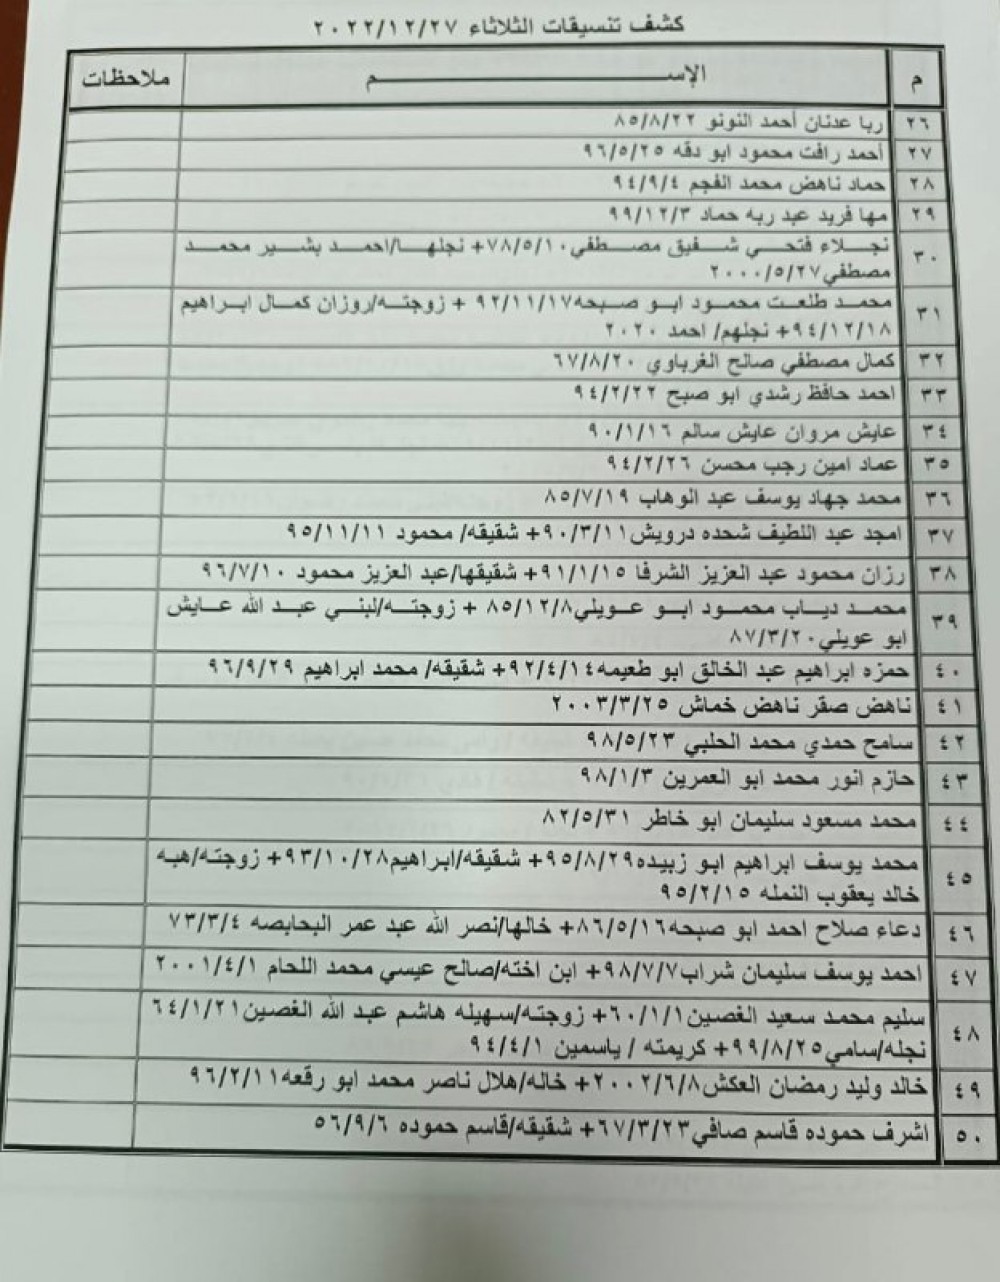 كشف تنسيقات الثلاثاء ٢٠٢٢/١٢/٢٧
م الإســـــم ملاحظات
٢٦ ربا عدنان أحمد النونو ٨٥/٨/٢٢
٢٧ أحمد رافت محمود ابو دقه ٩٦/٥/٢٥
٢٨ حماد ناهض محمد الفجم ٩٤/٩/٤
٢٩ مها فريد عبد ربه حماد ٩٩/١٢/٣
٣٠ نجلاء فتحي شفيق مصطفي٧٨/٥/١٠+ نجلها/احمد بشير محمد
مصطفي٢٠٠٠/٥/٢٧
٣١ محمد طلعت محمود ابو صبحه٩٢/١١/١٧ + زوجته/روزان كمال ابراهيم
٩٤/١٢/١٨+ نجلهم/ احمد ٢٠٢٠
٣٢ كمال مصطفي صالح الغرباوي ٦٧/٨/٢٠
٣٣ احمد حافظ رشدي ابو صبح ٩٤/٢/٢٢
٣٤ عايش مروان عايش سالم ٩٠/١/١٦
٣٥ عماد امين رجب محسن ٩٤/٢/٢٦
٣٦ محمد جهاد يوسف عبد الوهاب ٨٥/٧/١٩
٣٧ امجد عبد اللطيف شحده درويش٩٠/٣/١١+ شقيقه/ محمود ٩٥/١١/١١
٣٨ رزان محمود عبد العزيز الشرفا ٩١/١/١٥+ شقيقها/عبد العزيز محمود ٩٦/٧/١٠
٣٩ محمد دياب محمود ابو عويلي٨٥/١٢/٨ + زوجته/لبني عبد الله عايش
ابو عويلي٨٧/٣/٢٠
٤٠ حمزه ابراهيم عبد الخالق ابو طعيمه٩٢/٤/١٤+ شقيقه/ محمد ابراهيم ٩٦/٩/٢٩
٤١ ناهض صقر ناهض خماش ٢٠٠٣/٣/٢٥
٤٢ سامح حمدي محمد الحلبي ٩٨/٥/٢٣
٤٣ حازم انور محمد ابو العمرين ٩٨/١/٣
٤٤ محمد مسعود سليمان ابو خاطر ٨٢/٥/٣١
٤٥ محمد يوسف ابراهيم ابو زبيده٩٥/٨/٢٩+ شقيقه/ابراهيم٩٣/١٠/٢٨+ زوجته/هبه
خالد يعقوب النمله ٩٥/٢/١٥
٤٦ دعاء صلاح احمد ابو صبحه٨٦/٥/١٦+ خالها/نصر الله عبد عمر البحابصه ٧٣/٣/٤
٤٧ احمد يوسف سليمان شراب٩٨/٧/٧+ ابن اخته/صالح عيسي محمد اللحام ٢٠٠١/٤/١
٤٨ سليم محمد سعيد الغصين٦٠/١/١+ زوجته/سهيله هاشم عبد الله الغصين٦٤/١/٢١
نجله/سامي٩٩/٨/٢٥+ كريمته / ياسمين ٩٤/٤/١
٤٩ خالد وليد رمضان العكش٢٠٠٢/٦/٨+ خاله/هلال ناصر محمد ابو رقعه٩٦/٢/١١
٥٠ اشرف حموده قاسم صافي٦٧/٣/٢٣+ شقيقه/قاسم حموده ٥٦/٩/٦